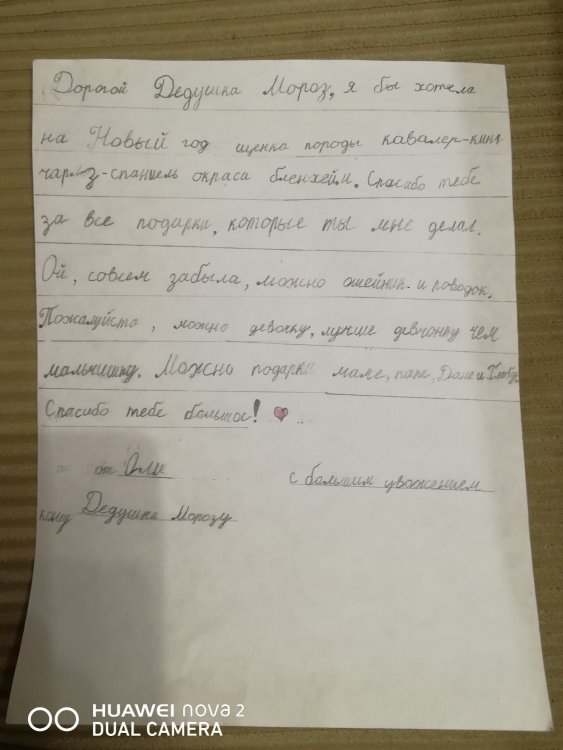 Дорогой Дедушка Мороз, я бы хотела
на Новый год щенка породы кавалер-кинг
чарлз-спаниель окраса бленхейм. Спасибо тебе
за все подарки, которые ты мне делал.
Ой, совсем забыла, можно ошейник и поводок.
Пожалуйста, можно девочку, лучше девчонку чем
мальчишку. Можно подарки маме, папе, Дане и
Спасибо тебе большое!
от Оли
с большим уважением
кому Дедушке Морозу
HUAWEI nova 2
DUAL CAMERA